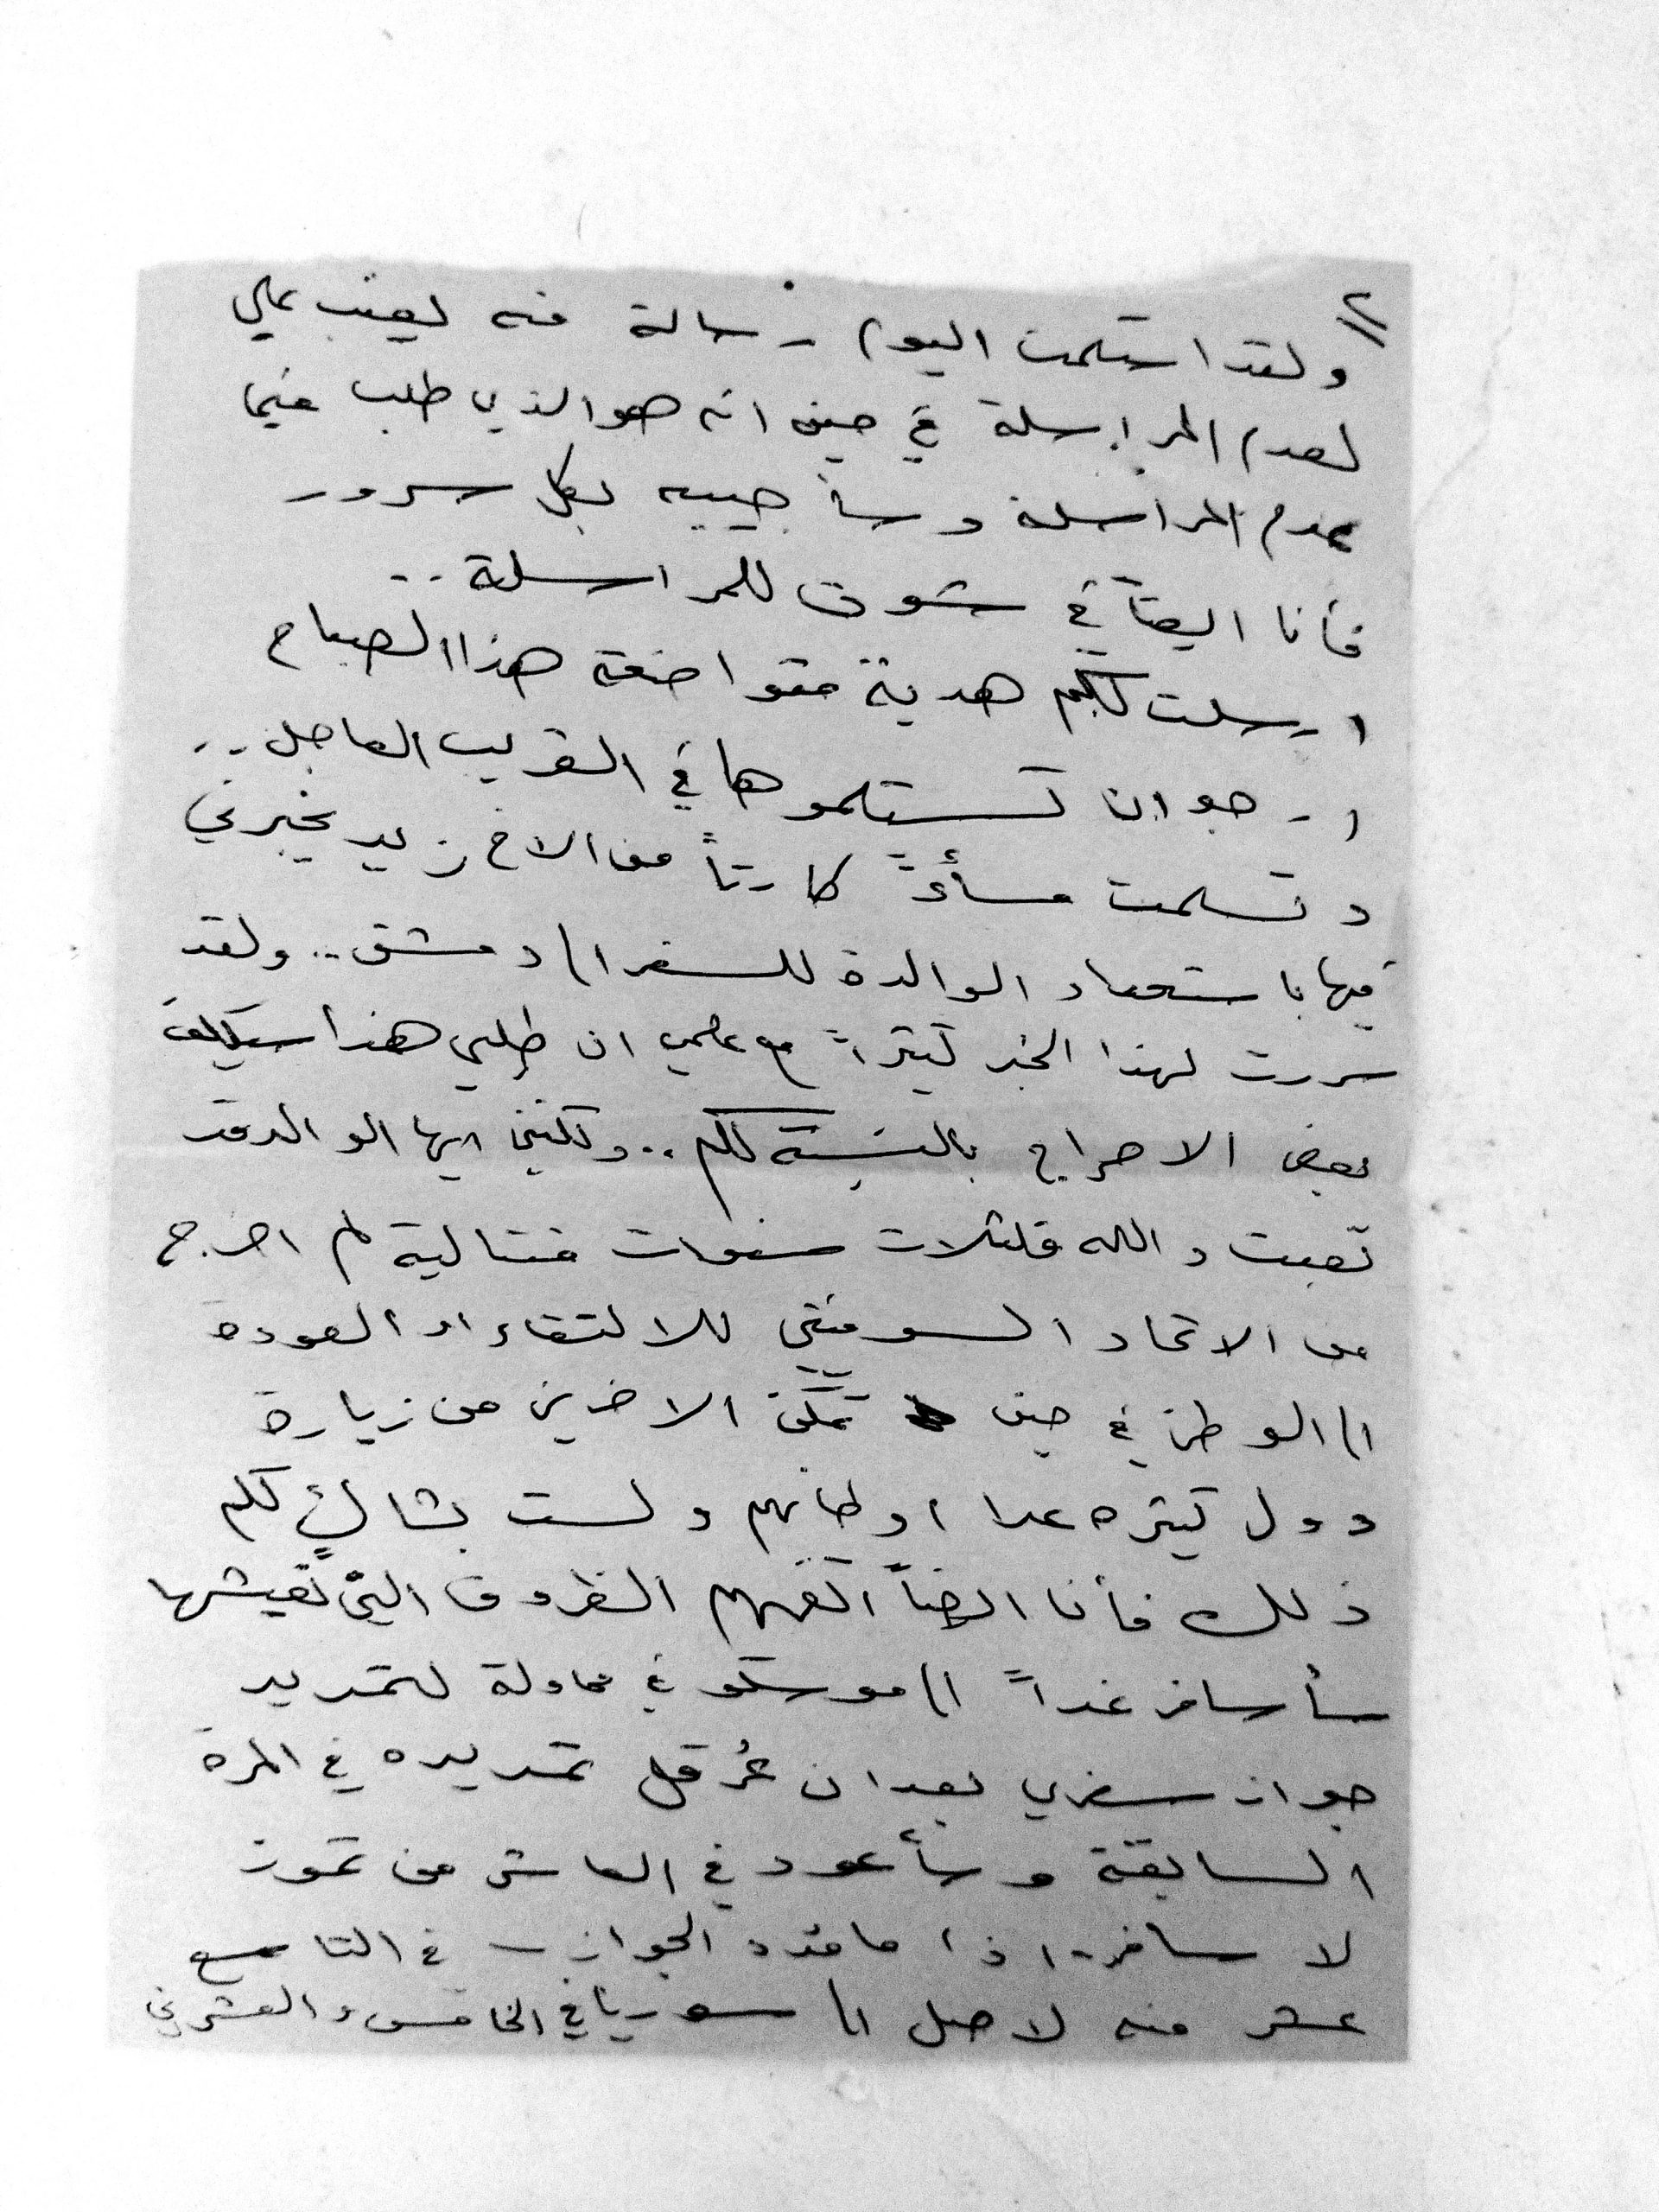 ٢
ولقد استلمت اليوم رسالة منه يعتب علي
لعدم المراسلة في حين انه هو الذي طلب مني
عدم المراسلة وسأجيبه بكل سرور
فأنا ايضاً في شوق للمراسلة ..
ارسلت لكم هدية متواضعة هذا الصباح
ارجو ان تستلموها في القريب العاجل ..
وتسلمت مساءً كارتاً من الاخ زيد يخبرني
فيها باستعداد الوالدة للسفر الى دمشق .. ولقد
سررت لهذا الخبر كثيراً مع علمي ان طلبي هذا سيكلف
بعض الاحراج بالنسبة لكم .. ولكنني ايها الوالد قد
تعبت والله فلثلاث سنوات متتالية لم اخرج
من الاتحاد السوفيتي للالتقاء او العودة
الى الوطن في حين تمكن الاخرين من زيارة
دول كثيره عدا اوطانهم ولست بشاكٍ لكم
ذلك فأنا ايضاً اتفهم الظروف التي تعيشها
سأسافر غداً الى موسكو في محاولة لتمديد
جواز سفري بعد ان عُرقل تمديده في المرة
السابقة وسأعود في العاشر من تموز
لا سافر - اذا ما مُدد الجواز - في التاسع
عشر منه لاصل الى سوريا في الخامس والعشرين